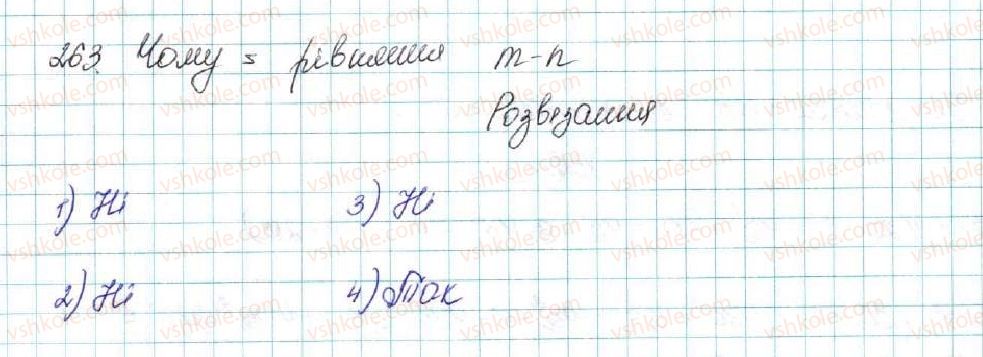 263. Чому = рівняння m-n
Розвязання
1) Ні 3) Ні
2) Ні 4) Так